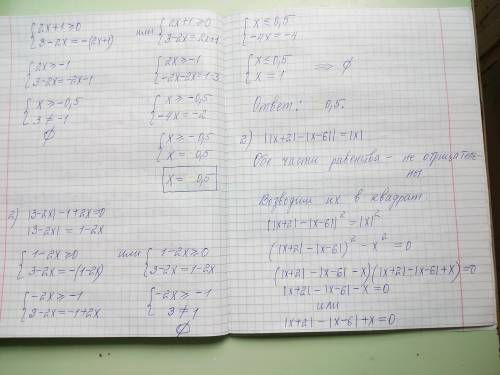 {2x+1≥0
{3-2x=-(2x+1)
или
{2x+1≥0
{3-2x=2x+1
{2x≥-1
{3-2x=-2x-1
{2x≥-1
{-2x-2x=1-3
{x≥-0,5
{3≠-1
∅
{x≥-0,5
{-4x=-2
{x≥-0,5
{x=0,5
x=0,5
2) |3-2x|-1+2x=0
|3-2x|=1-2x
{1-2x≥0
{3-2x=-(1-2x)
или
{1-2x≥0
{3-2x=1-2x
{-2x≥-1
{3-2x=-1+2x
{-2x≥-1
{3≠1
∅
{x≤0,5
{-4x=-4
{x≤0,5
{x=1
⟹ ∅
Ответ: 0,5.
2) ||x+2|-|x-6||=|x|
Обе части равенства - не отрицательны
Возводим их в квадрат
(|x+2|-|x-6|)²=|x|²
(|x+2|-|x-6|)²-x²=0
(|x+2|-|x-6|-x)(|x+2|-|x-6|+x)=0
|x+2|-|x-6|-x=0
или
|x+2|-|x-6|+x=0